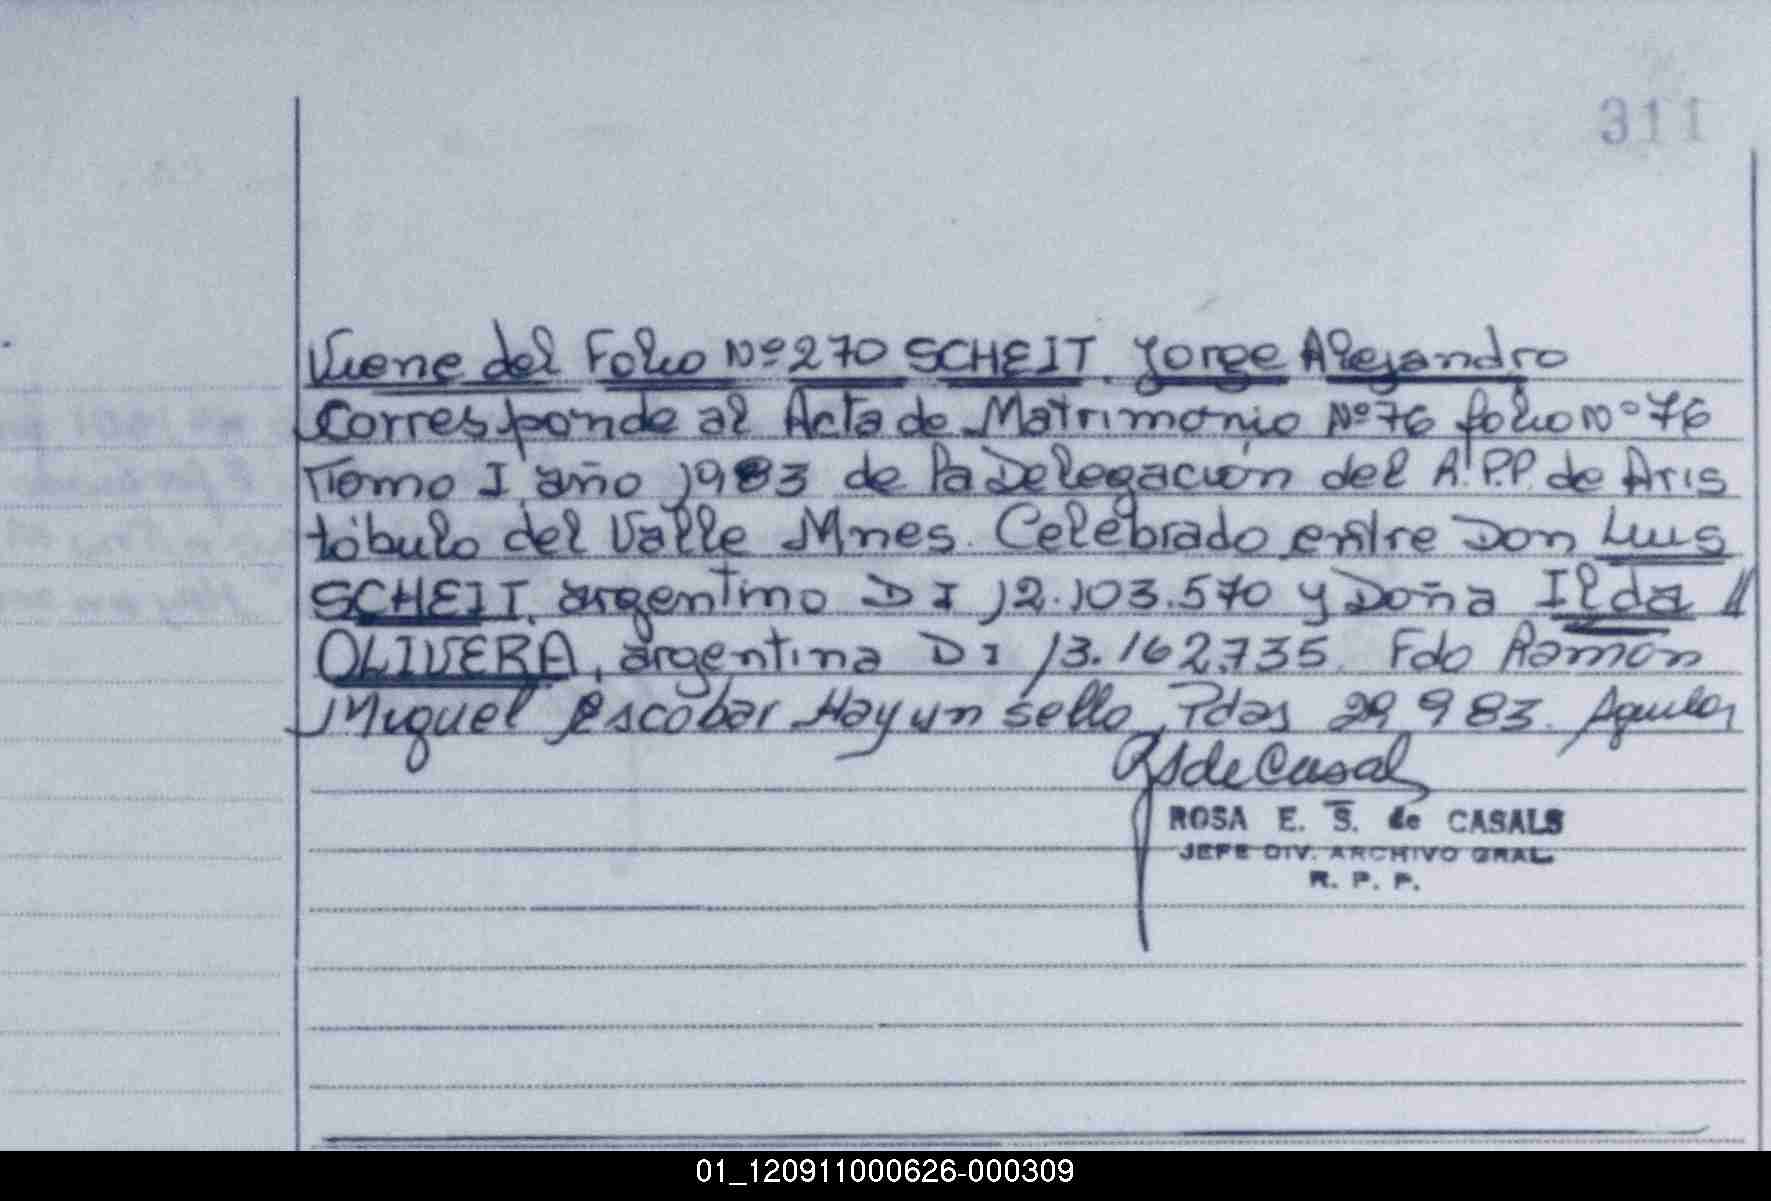 311
Viene del Folio Nº 270 SCHEIT. Jorge Alejandro
Corresponde al Acta de Matrimonio Nº 76 folio Nº 76
Tomo I, año 1983 de la Delegación del R.P.P. de Aris
tóbulo del Valle Mnes. Celebrado entre Don Luis
SCHEIT, argentino D I 12.103.570 y Doña Ilda //
OLIVERA, argentina D I 13.162.735. Fdo Ramon
Miguel Escobar Hay un sello, Pdas 29 9 83. Aguilar
RS de Casal
ROSA E. S. de CASALS
JEFE DIV. ARCHIVO GRAL.
R. P. P.
01_120911000626-000309